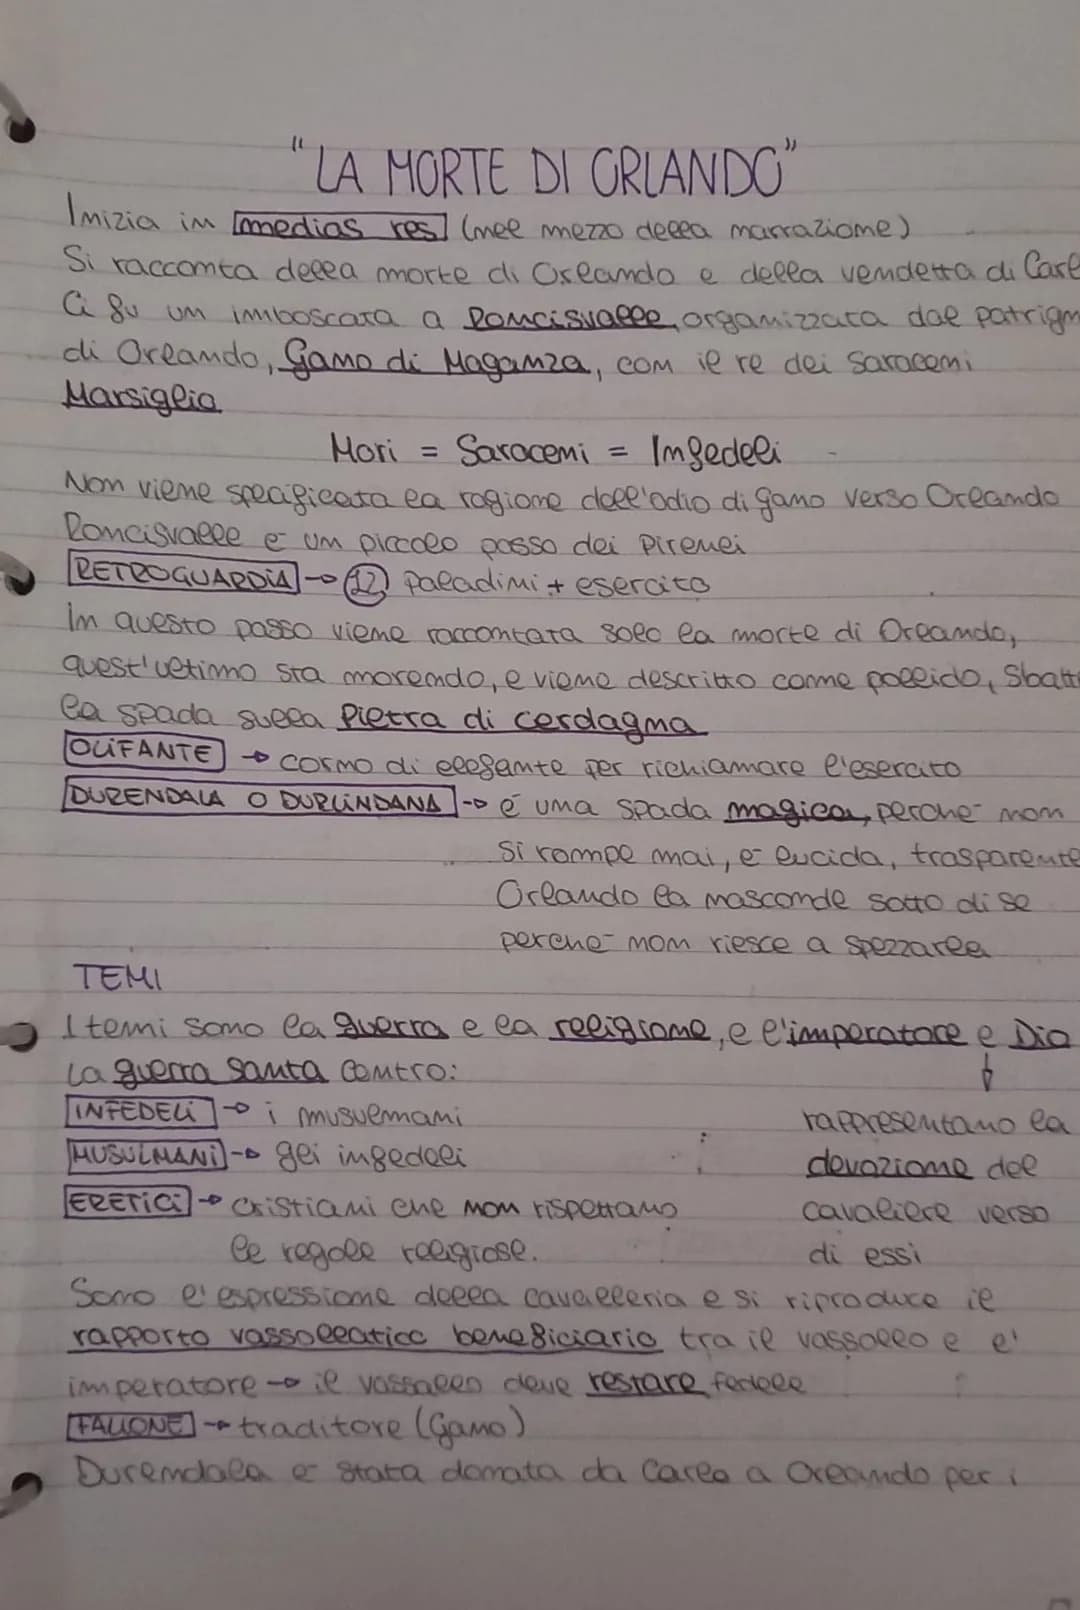 "LA MORTE DI ORLANDO"
Inizia in medias res (nel mezzo della narrazione)
Si racconta della morte di Orlando e della vendetta di Carl
Ci fu un imboscata a Roncisvalle, organizzata dal patrign
di Orlando, Gano di Maganza, con il re dei saraceni
Marsiglio
Mori = Saraceni = Infedeli
Non viene specificata la ragione dell'odio di gano verso Orlando
Roncisvalle è un piccolo passo dei Pirenei
RETROGUARDIA → 12 paladini + esercito
In questo passo viene raccontata solo la morte di Orlando,
quest'ultimo sta morendo, e viene descritto come pallido, Sbatt
la spada sulla Pietra di cerdagna
OLIFANTE → corno di elefante per richiamare l'esercito
DURENDALA O DURLINDANA → é una spada magica, perché non
si rompe mai, è lucida, trasparente
Orlando la nasconde sotto di se
perché non riesce a spezzarla
TEMI
I temi sono la guerra e la religione, e l'imperatore e Dio
La guerra santa contro:
INFEDELI → i musulmani
MUSULMANI → gli infedeli
ERETICI → cristiani che non rispettano
le regole religiose.
rappresentano la
devozione del
cavaliere verso
di essi
Sono l'espressione della cavalleria e si riproduce il
rapporto vassollatico beneficiario tra il vassollo e l'
imperatore → il vassallo deve restare fedele
FALLONE → traditore (Gano)
Durendala è stata donata da Carlo a Orlando per i